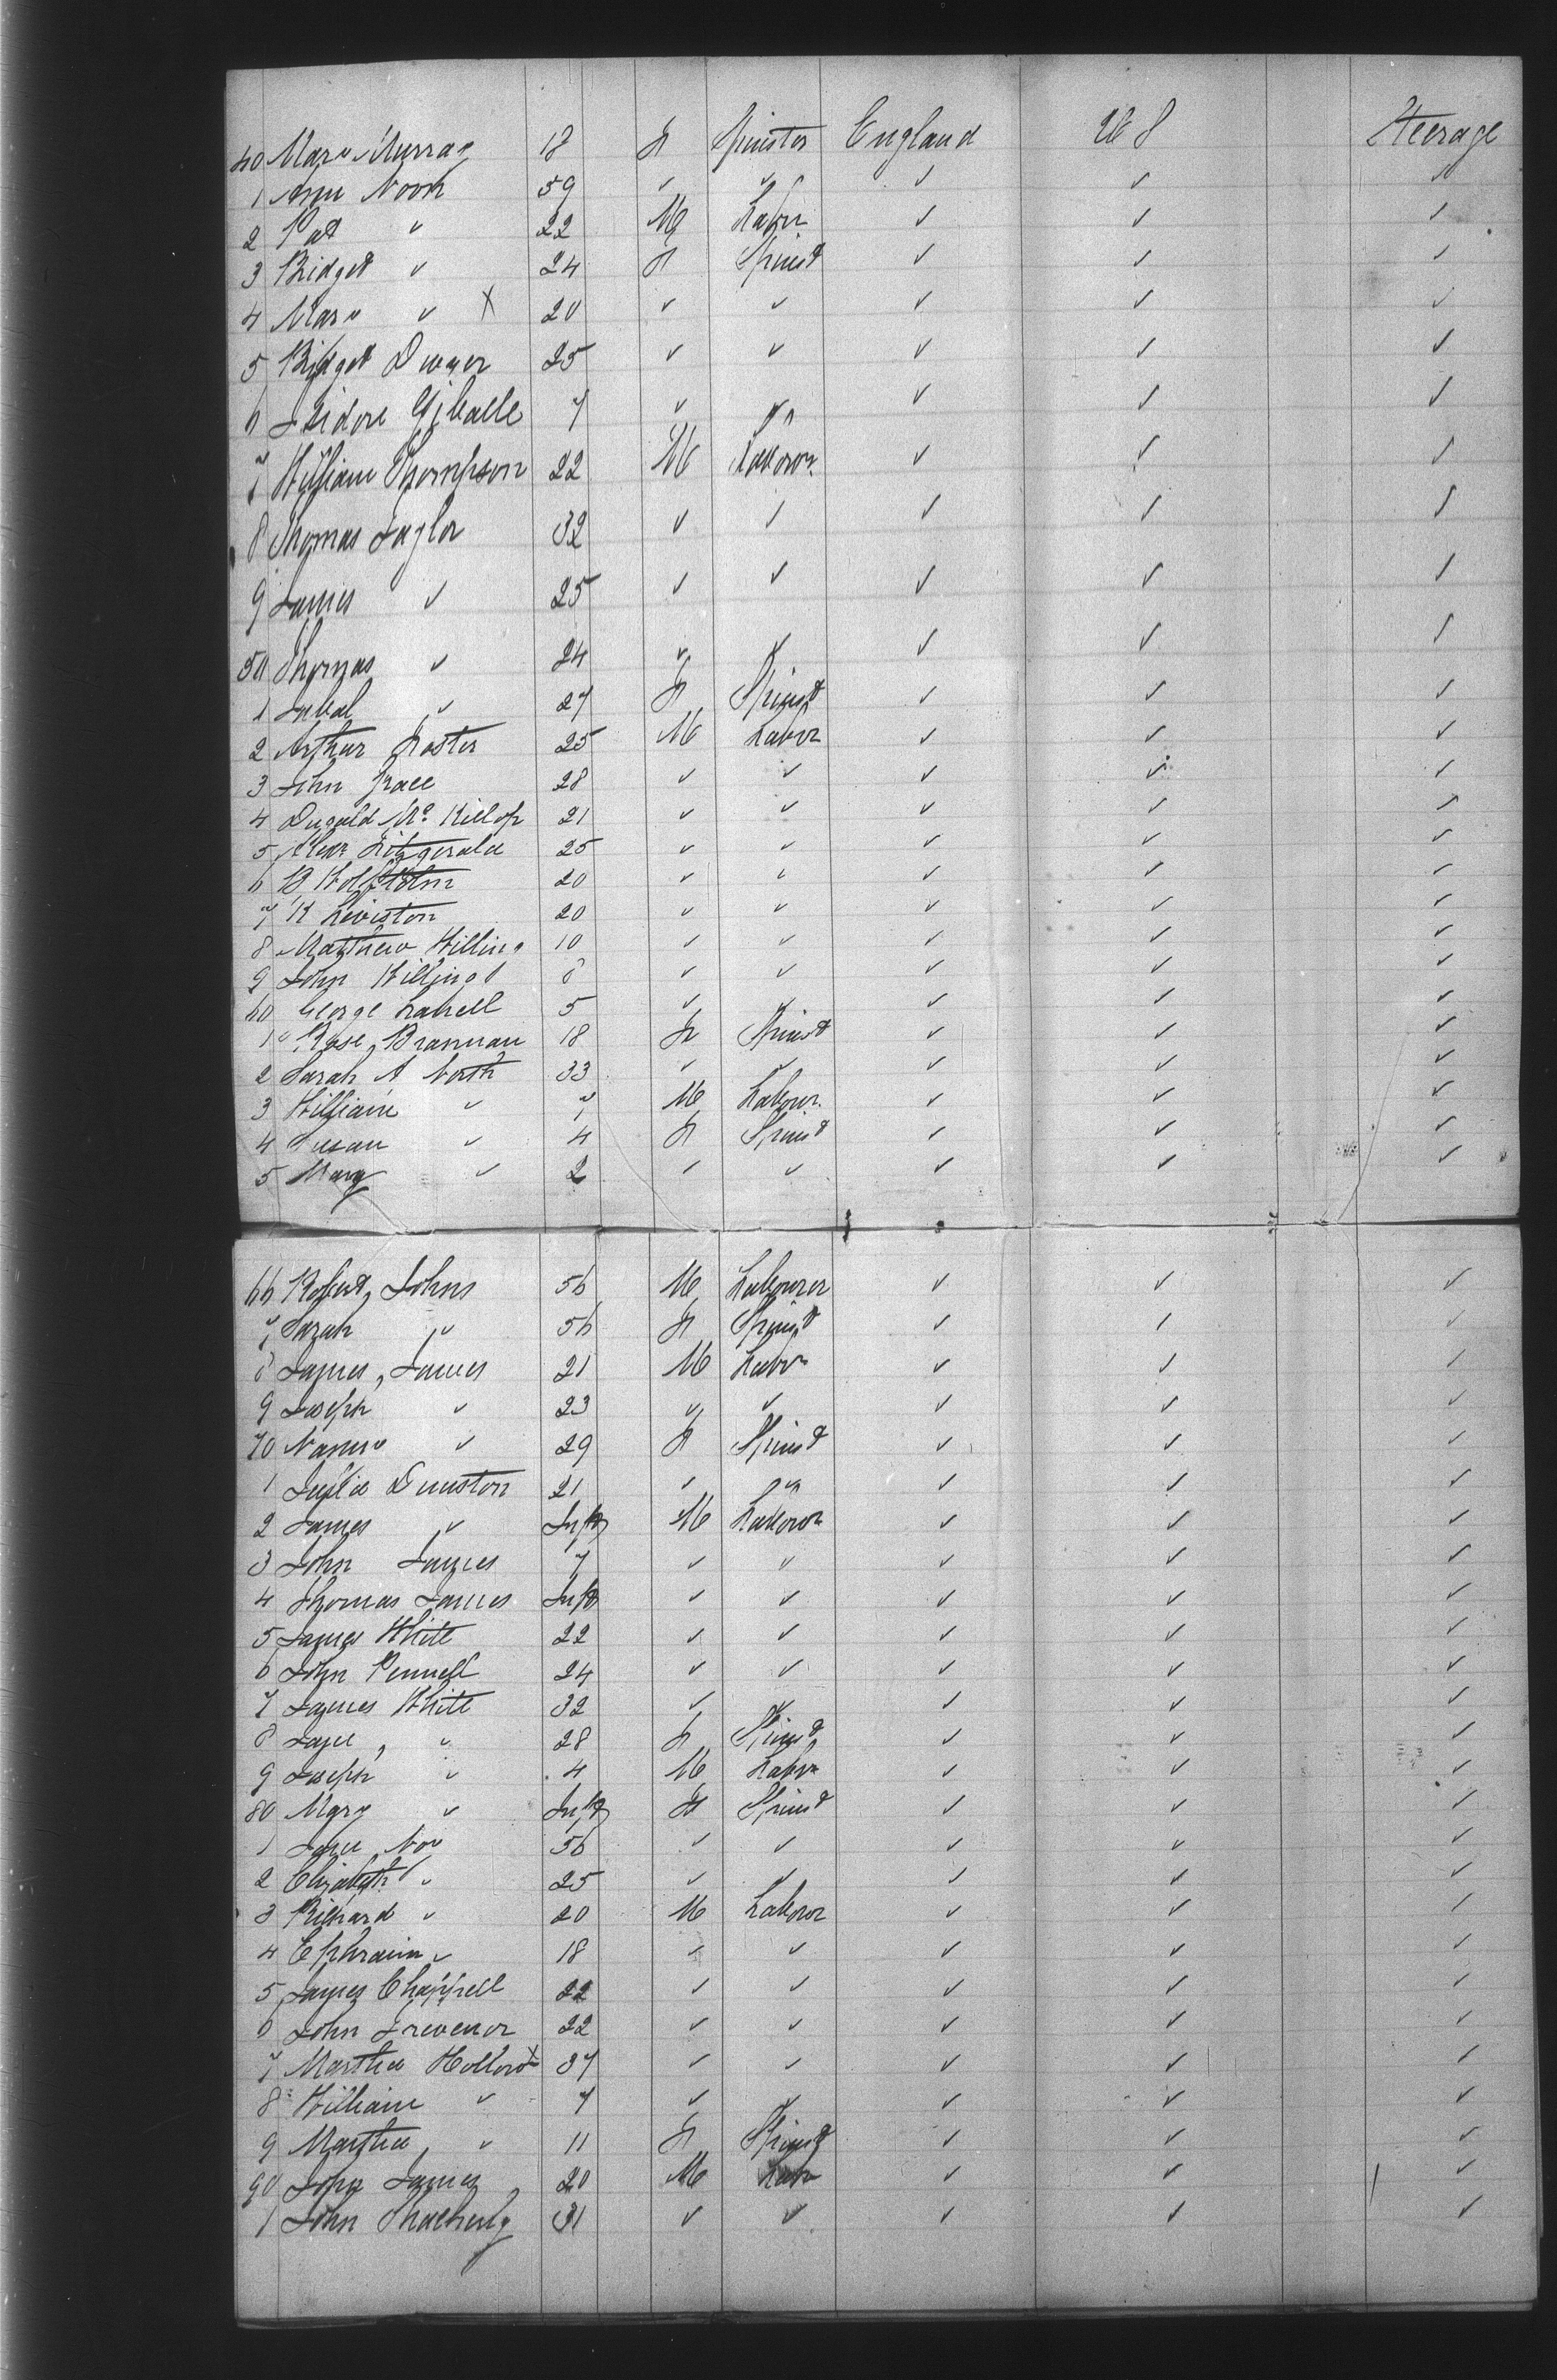 40 Mary Murray 18 F Spinster England U S Steerage
1 Ann Noon 59 " " " " "
2 Pat " 22 M Labr " " "
3 Bridget " 24 F Spinst " " "
4 Mary " X 20 " " " " "
5 Bridget Dwyer 25 " " " " "
6 Isidore 7 " " " " "
7 William Thompson 22 M Labour " " "
8 Thomas Taylor 32 " " " " "
9 James " 25 " " " " "
50 Thomas " 24 " " " " "
1 " 27 F Spinst " " "
2 Arthur Foster 25 M Labor " " "
3 John Grace 28 " " " " "
4 Dugald Mc Killop 21 " " " " "
5 Alexr Fitzgerald 25 " " " " "
6 B 20 " " " " "
7 K Leviston 20 " " " " "
8 Matthew Willing 10 " " " " "
9 John Willing 8 " " " " "
60 George 5 " " " " "
1 Rose Brannan 18 F Spinst " " "
2 Sarah A North 33 " " " " "
3 William " 7 M Labour " " "
4 Susan " 4 F Spinst " " "
5 Mary " 2 " " " " "
66 Robert Johns 56 M Labourer " " "
7 Sarah " 56 F Spinst " " "
8 James, James 21 M Labor " " "
9 Joseph " 23 " " " " "
70 " 29 F Spinst " " "
1 Julia Dunston 21 " " " " "
2 James " Inft M Labour " " "
3 John James 7 " " " " "
4 Thomas James Inft " " " " "
5 James White 22 " " " " "
6 John Pennell 24 " " " " "
7 James White 32 " " " " "
8 Jane, " 28 F Spinst " " "
9 Joseph " 4 M Labr " " "
80 Mary " Inft F Spinst " " "
1 Jane 56 " " " " "
2 Elizabeth " 25 " " " " "
3 Richard " 20 M Labour " " "
4 Ephraim " 18 " " " " "
5 James Chappell 22 " " " " "
6 John Trevenor 22 " " " " "
7 Martha X 37 " " " " "
8 William " 7 " " " " "
9 Martha " 11 F Spinst " " "
90 John James 20 M Labr " " "
1 John 31 " " " " "